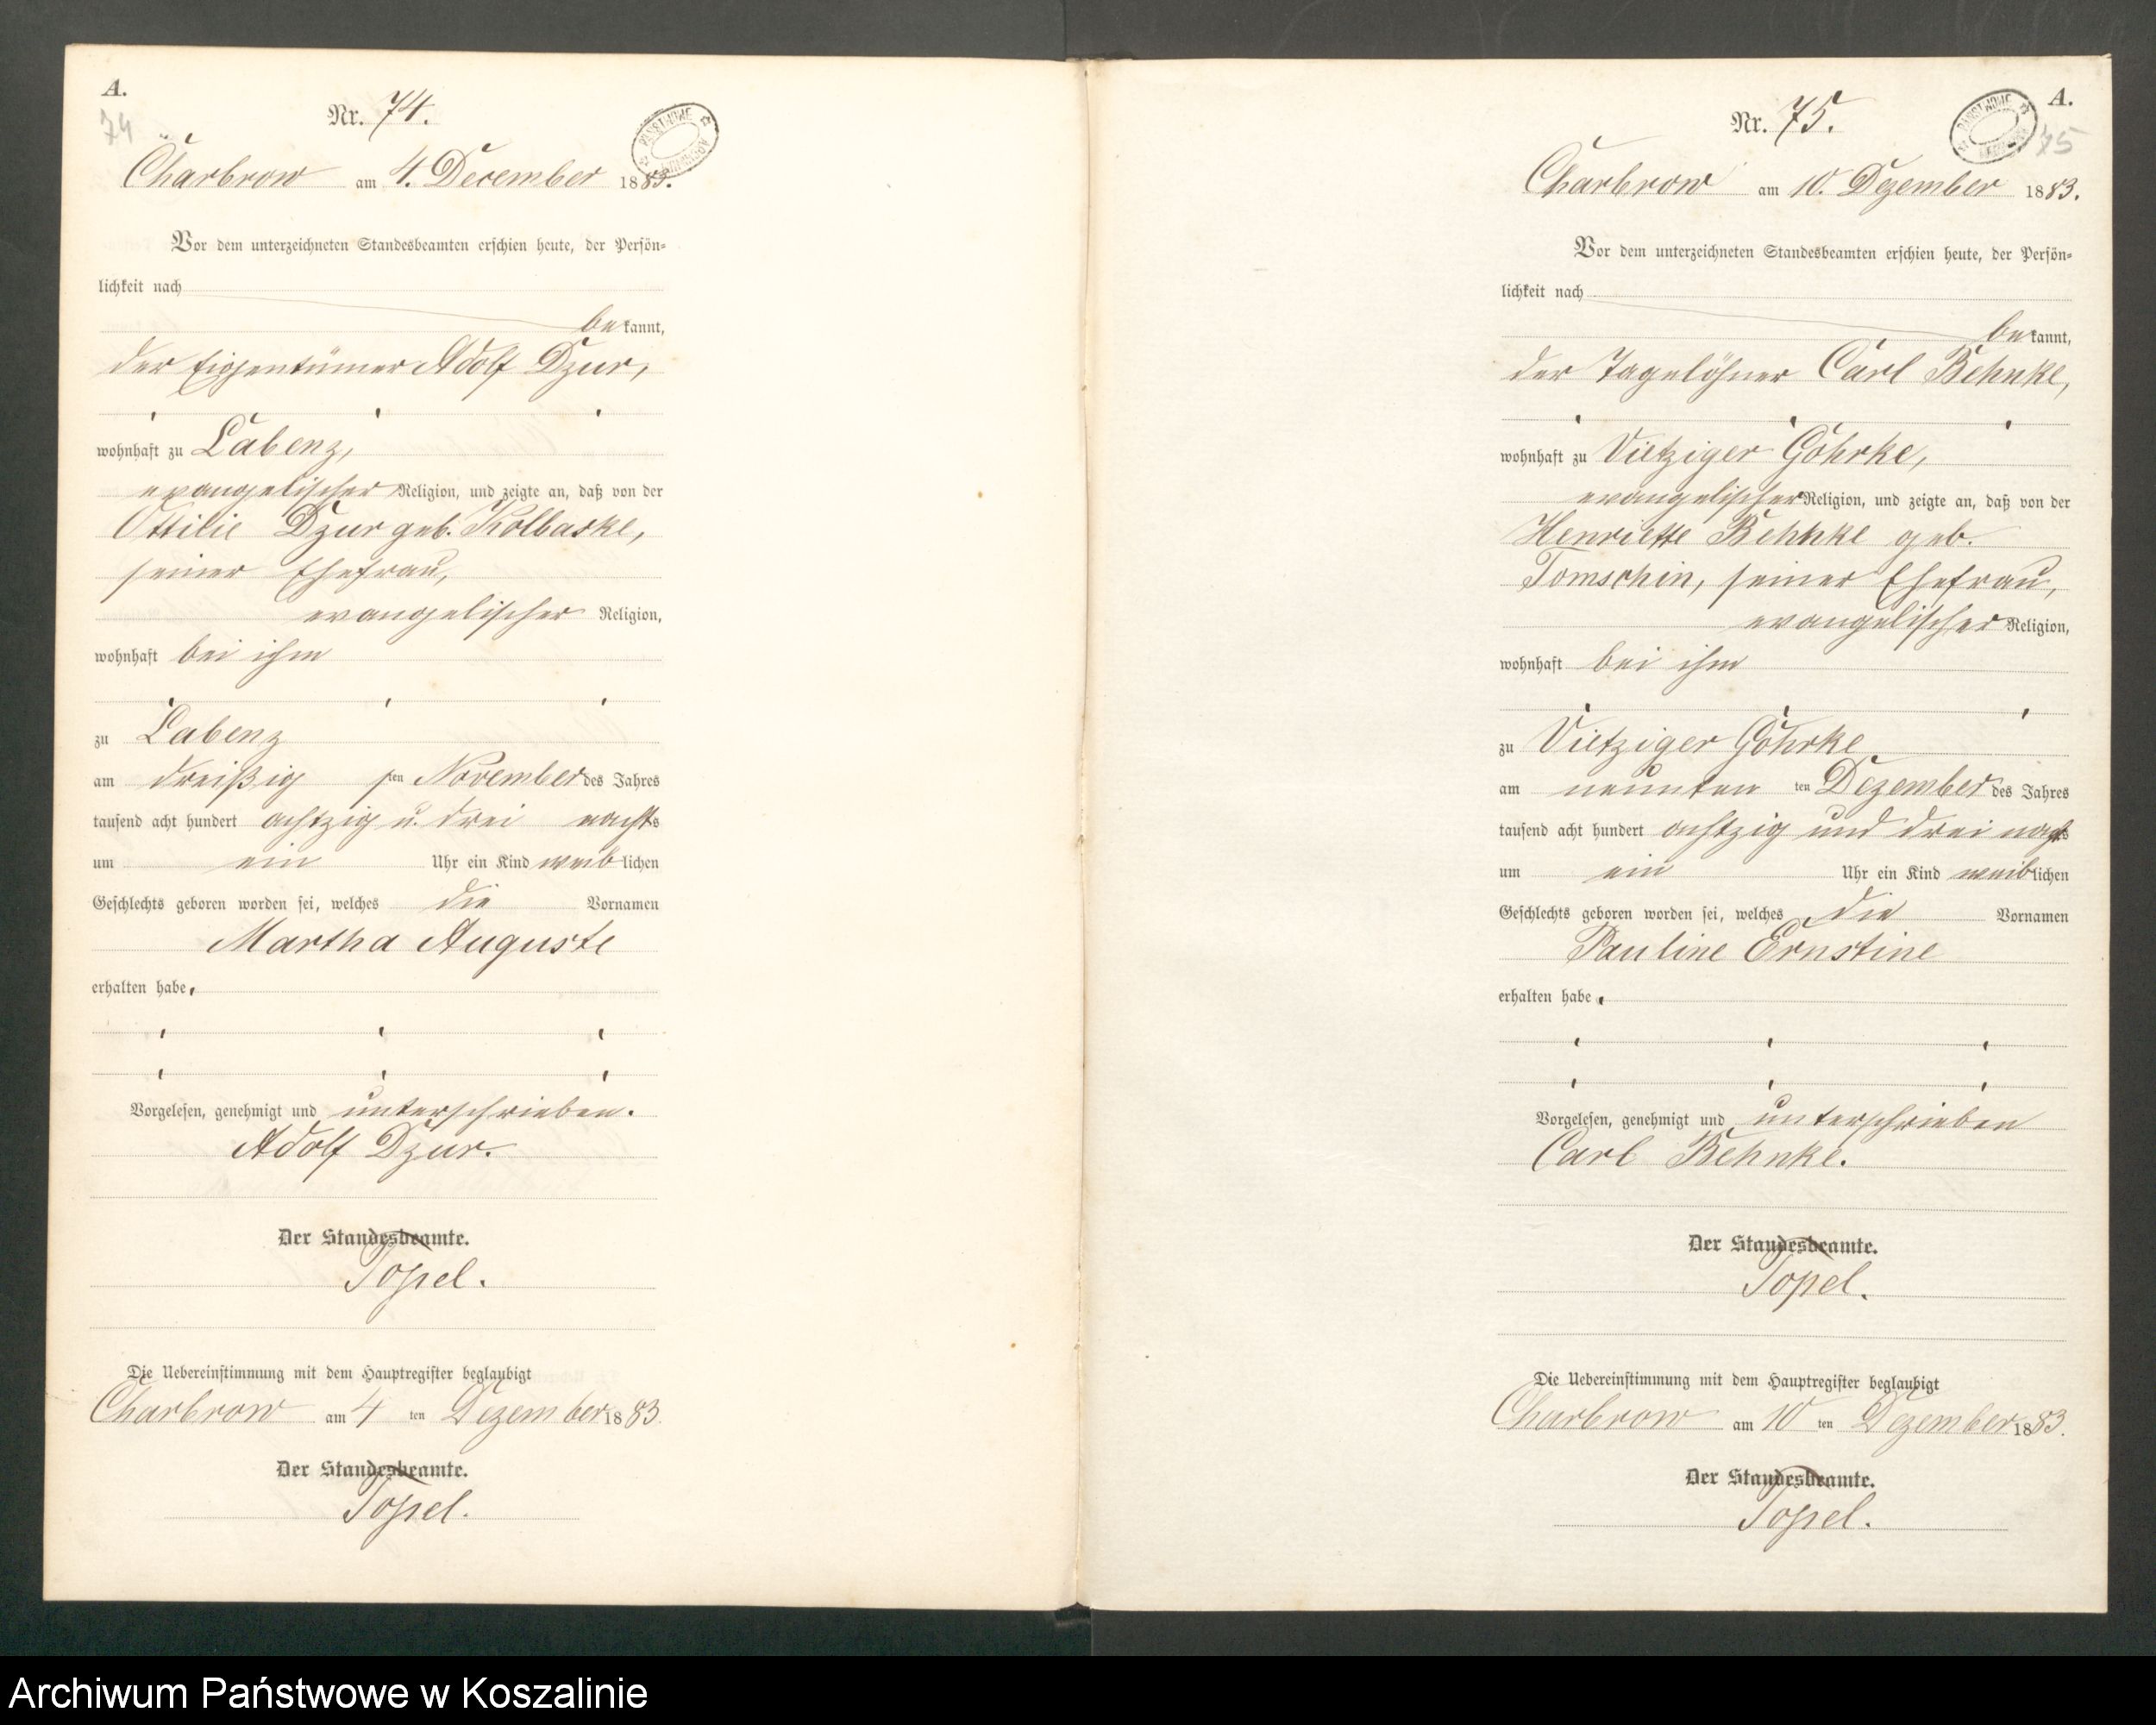 A.
74
Nr. 74.
PAŃSTWOWE
Charbrow am 4. December 1883.
Vor dem unterzeichneten Standesbeamten erschien heute, der Persön=
lichkeit nach
bekannt,
der Eigentümer Adolf Dzur,
wohnhaft zu Labenz,
evangelischer Religion, und zeigte an, daß von der
Ottilie Dzur geb. Kolbaske,
seiner Ehefrau,
evangelischer Religion,
wohnhaft bei ihm
zu Labenz
am dreißig sten November des Jahres
tausend acht hundert achtzig u. drei nachts
um ein Uhr ein Kind weiblichen
Geschlechts geboren worden sei, welches die Vornamen
Martha Auguste
erhalten habe,
Vorgelesen, genehmigt und unterschrieben.
Adolf Dzur.
Der Standesbeamte.
Topel.
Die Uebereinstimmung mit dem Hauptregister beglaubigt
Charbrow am 4 ten Dezember 1883.
Der Standesbeamte.
Topel.
A.
75
Nr. 75.
Charbrow am 10. Dezember 1883.
Vor dem unterzeichneten Standesbeamten erschien heute, der Persön=
lichkeit nach
bekannt,
der Tagelöhner Carl Behnke,
wohnhaft zu Vietziger Göhrke,
evangelischer Religion, und zeigte an, daß von der
Henriette Behnke geb.
Tomschin, seiner Ehefrau,
evangelischer Religion,
wohnhaft bei ihm
zu Vietziger Göhrke
am neunten ten Dezember des Jahres
tausend acht hundert achtzig und drei nachts
um ein Uhr ein Kind weiblichen
Geschlechts geboren worden sei, welches die Vornamen
Pauline Ernstine
erhalten habe,
Vorgelesen, genehmigt und unterschrieben
Carl Behnke.
Der Standesbeamte.
Topel.
Die Uebereinstimmung mit dem Hauptregister beglaubigt
Charbrow am 10 ten Dezember 1883.
Der Standesbeamte.
Topel.
Archiwum Państwowe w Koszalinie